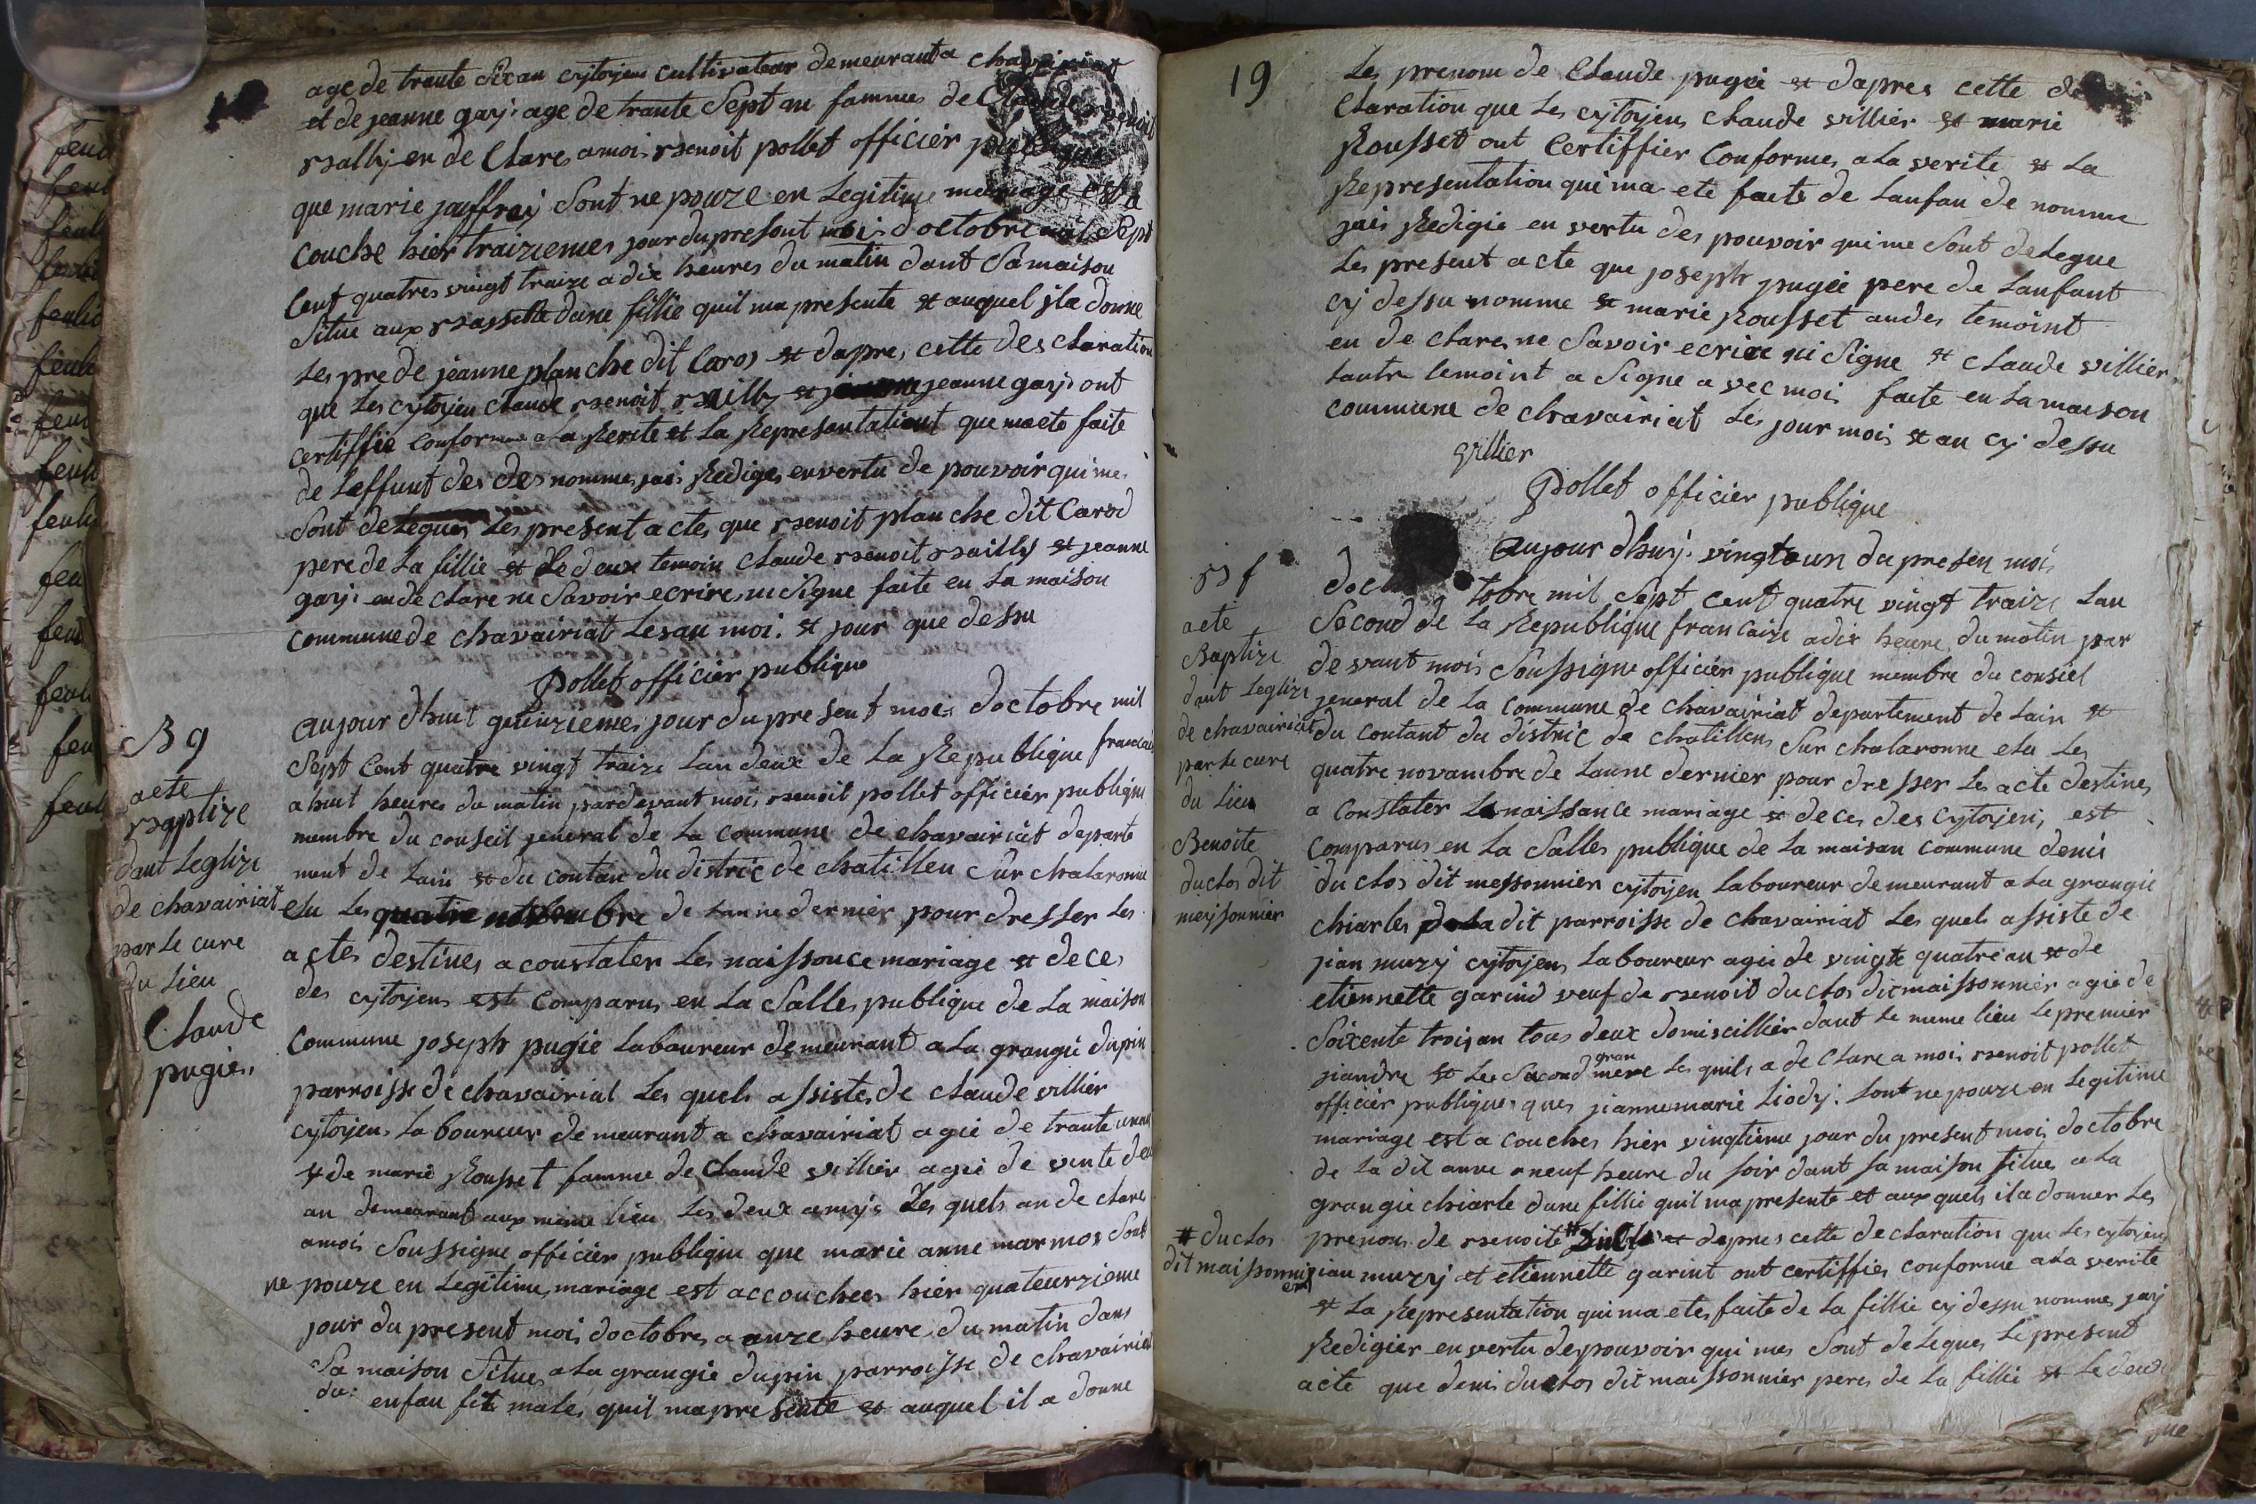 age de trante Six an cytoyen cultivateur demeurant a chavairiat
et de jeanne gay: age de trante Sept an fammes de Claude
rsally en de Clares amoi rsenoit pollet officier publique
que marie jauffrey Sont ne pouze en Legitime mariage est a
couche hier traiziemes jour du presout moi d octobre mil Sept
Cent quatres vingt traize a dix heures du matin dant Sa maison
Situe aux rsassette dune fillie quil ma presente et auquel jla donne
Les pre de jeanne plan che dit Caros et dapres cette des claration
que Les cytoyen claude rsenoit rsailly et jeanne gay: ont
certiffie conforme a La Verite et La Representatiout que ma ete faite
de Leffunt des des nommes jais Rediges en vertu de pouvoir qui mes
Sont delegues Les present actes que rsenoit plan che dit Carod
pere de La fillie et Le deux temoin claude rsenoit rsailly et jeanne
gay: en de clare ne Savoir ecrire ni Signe faite en La maison
commune de chavairiat Les an moi. et jour que dessu
pollet officier publique
B 9
acte
rsaptize
dant Leglize
de chavairiat
par Le cure
du Lieu
Claude
pugie.
aujour dhuit quinziemes jour du present mois doctobre mil
Sept Cent quatre vingt traize Lan deux de La Republique francais
a huit heures du matin pardevant moi rsenoit pollet officier publique
membre du conseil jeneral de La commune de chavairiat departe
ment de Lain et du contan du distric de chatillen Sur chalaronne
elu Les quatre novembre de Lanne dernier pour dresser Les
actes destines a constater Les naissance mariage et deces
des cytoyens est comparus en La Salles publique de La maison
Commune joseph pugie Laboureur demeurant a La grangie dupin
parroisse de chavairiat Les quels assistes de claude villier
cytoyens Laboureur demeurant a chavairiat agie de trante
et de marie Rousset famme de Claude villier agie de vente deu
an demeurant aux meme lieu Les deux amys Les quels an de clares
amois Soussigne officier publique que marie anne marmos Sont
ne pouze en Legitimes mariage est accouchees hier quateurzieme
jour du present moi doctobres a onze heure du matin dans
Sa maison Situe a La grangie dupin parroisse de chavairiat
du: enfan fit males quil ma presente et auquel il a donne
19
Les prenom de Claude pugie et dapres cette de
claration que Les cytoyens claude villier et marie
Rousset ont Certiffier Conformes a La verite et La
Representation qui ma ete faite de Lanfan de nomme
jais Redigie en vertu des pouvoir qui me Sont delegue
Les present acte que joseph pugie pere de Lanfant
cy dessu nomme et marie Rousset andes temoint
en de clares ne Savoir ecrire ni Signe et claude villier
Lautre temoint a Signe avec moi faite en La maison
commune de chavairiat Les jour mois et an cy dessu
villier
pollet officier publique
rs f
acte
Baptize
dant Leglize
de chavairiat
par Le cure
du Lieu
Benoite
duclos dit
meyssonnier
aujour dhuy: vingteun du presen moi
doc tobre mil Sept cent quatre vingt traize Lan
Second de La Republique francaize a dix heure du matin par
devant mois Soussigne officier publique membre du consiel
jeneral de La commune de chavairiat departement de Lain et
du contant du distric de chatillens Sur chalaronne elu Les
quatre novambre de Lanne dernier pour dresser Les acte destines
a Constater La naissance mariage et deces des cytoyens est
comparus en La Salles publique de La maison commune denis
du clos dit messonnier cytoyen Laboureur demeurant a La grangie
chiarles de La dit parroisse de chavairiat Les quels assiste de
jian muzy cytoyens Laboureur agie de vingte quatre an et de
etiennette garind veuf de rsenoit duclos dit maissonnier agie de
Soixente trois an tous deux domiscillier dant Le meme lieu Le premier
jiandre et Les Second gran mere Les quils a de Clare a mois rsenoit pollet
officier publiques ques jiannemarie Liody: Sont ne pouze en Legitime
mariage est a couches hier vingtieme jour du present moi doctobre
de La dit anne a neuf heure du soir dant sa maison situe a La
grangie chiarle dune fillie quil ma presente et aux quels il a donner Les
# duclos
dit maissonnier
prenons de rsenoite # et depres cette declaration que Les cytoyens
jian muzy et etiennette garint ont certiffies conforme a La verite
et La Representation qui ma ete faite de La fillie cy dessu nomme jay
Redigier en vertu de pouvoir qui mes Sont delegues Le present
acte que denis duclos dit maissonnier peres de La fillie et Le deux
que